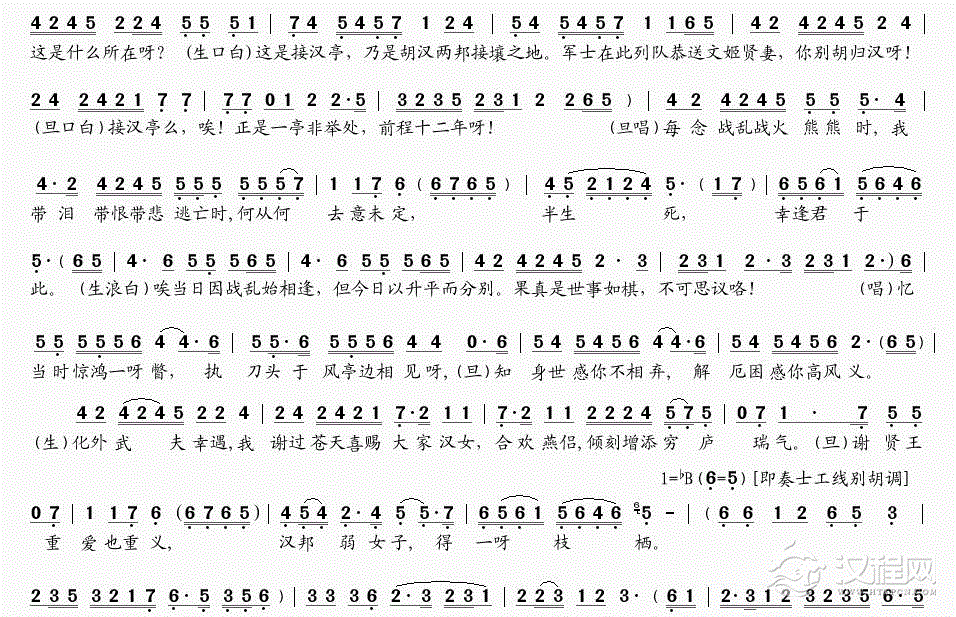 4245 224 55 51 | 74 5457 1 24 | 54 5457 1 165 | 45 42 4245 24 |
这是什么所在呀？（生口白）这是接汉亭，乃是胡汉两邦接壤之地。军士在此列队恭送文姬贤妻，你别胡归汉呀！
24 2421 7 7 | 77 01 2 2·5 | 3235 231 2 265 ） | 42 4245 55 5·4 |
（旦口白）接汉亭么，唉！正是一亭非举处，前程十二年呀！（旦唱）每念战乱战火熊熊时，我
4·2 4245 555 5557 | 1 17 6 （6765） | 45 2124 5·（17） | 6561 5646
带泪 带恨带悲 逃亡时，何从何 去意未定， 半生 死， 幸逢君 于
5·（65 | 4· 6 55 565 | 4· 6 55 565 | 42 4245 2· 3 | 231 2·3 231 2·）6 |
此。（生浪白）唉当日因战乱始相逢，但今日以升平而分别。果真是世事如棋，不可思议咯！（唱）忆
55 5556 4 4·6 | 55·6 5556 44 0·6 | 54 5456 44·6 | 54 5456 2·（65） |
当时惊鸿一呀瞥， 执 刀头于 风亭边相见呀，（旦）知 身世感你不相弃， 解 厄困感你高风义。
42 4245 22 4 | 24 2421 7·2 11 | 7·2 11 2224 575 | 07 1 · 7 55
（生）化外武 夫幸遇，我 谢过苍天喜赐大家汉女，合欢燕侣，倾刻增添穷 庐 瑞气。（旦）谢 贤王
1=♭B（6=5）[即奏士工线别胡调]
07 | 1 17 6 （6765） | 454 2·4 5 5·7 | 6561 5646 5 - | （66 12 65 3
重 爱也重义， 汉邦 弱女子，得 一呀 枝 栖。
235 3217 6·5 356） | 33 36 2·3 231 | 223 12 3·（61 | 2·312 3235 6·5
汉程网
WWW.HTTPCN.COM